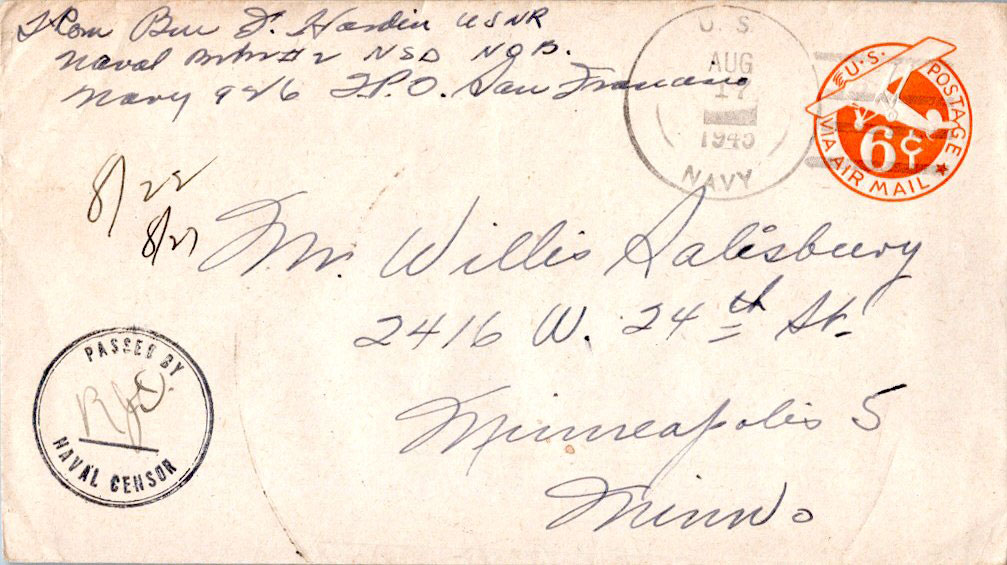 From Ben F. Hardin USNR
Naval #2 NSD NOB.
Navy 926 F.P.O. San Francisco
U. S.
AUG
17
1945
NAVY
U.S. POSTAGE
6¢
VIA AIR MAIL
8/22
8/27
Mr. Willis Salisbury
2416 W. 24th St.
Minneapolis 5
Minn.
PASSED BY
NAVAL CENSOR